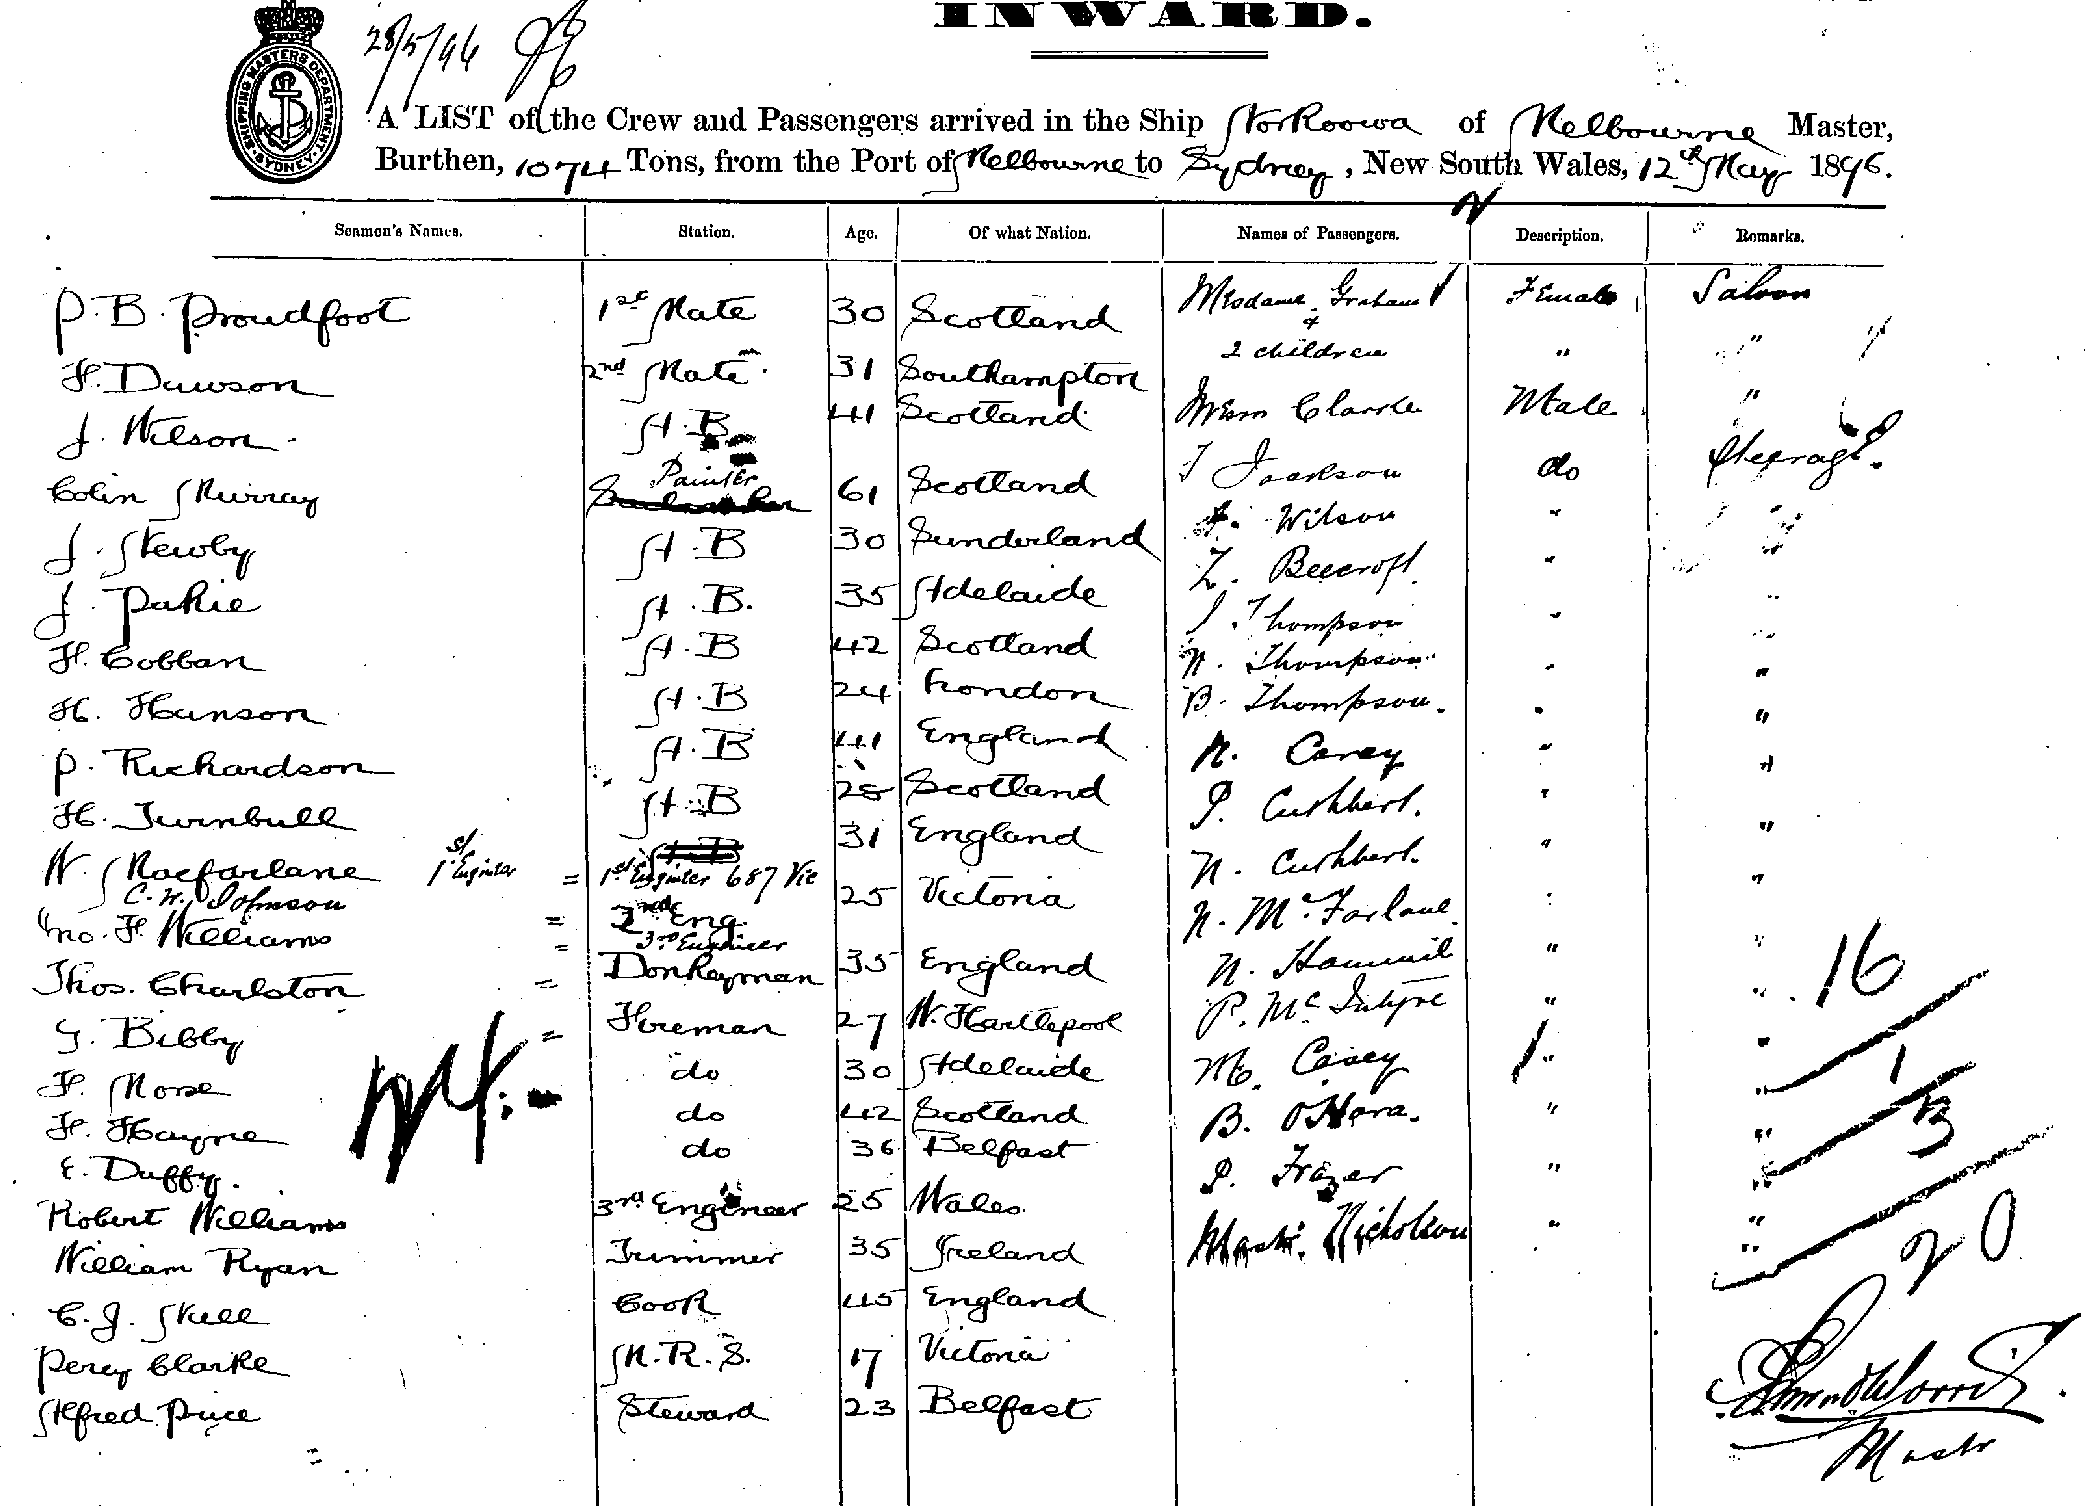 INWARD.
28/5/96
SHIPPING MASTERS DEPARTMENT. SYDNEY.
A LIST of the Crew and Passengers arrived in the Ship Norkoowa of Melbourne Master,
Burthen, 1074 Tons, from the Port of Melbourne to Sydney, New South Wales, 12th May 1896.
Seamen's Names. Station. Age. Of what Nation. Names of Passengers. Description. Remarks.
P. B. Proudfoot 1st Mate 30 Scotland Mesdame Graham Female Saloon
& 2 children " "
H. Dawson 2nd Mate 31 Southampton
J. Wilson A.B 41 Scotland Clarke Male "
Colin Murray Painter 61 Scotland T Jackson do Steerage.
J. Newby A.B 30 Sunderland J. Wilson " "
J. Pakie A.B. 35 Adelaide Z. Beecroft "
H. Cobban A.B 42 Scotland J. Thompson " "
H. Hanson A.B 24 London N. Thompson " "
P. Richardson A.B 41 England B. Thompson. " "
H. Turnbull A.B 28 Scotland N. Carey " "
W. Macfarlane 1st Engineer = 1st Engineer 687 Vic 31 England P. Cuthbert. " "
C. W. Johnson = 2nd Eng. 25 Victoria N. Cuthbert. " "
Jno. H. Williams = 3rd Engineer N. McFarlane. " "
Thos. Charlston = Donkeyman 35 England N. Hammil " "
G. Bibby = Fireman 27 W. Hartlepool P. McIntyre " " 16
F. Morse do 30 Adelaide M. Casey " " 1
H. Hayne do 42 Scotland B. O'Hara. " " 3
E. Duffy. do 36 Belfast P. Frazer " "
Robert Williams 3rd Engineer 25 Wales Mastr. Nicholson " " 20
William Ryan Trimmer 35 Ireland
C. J. Skell Cook 45 England
Percy Clarke M.R.S. 17 Victoria
Alfred Price Steward 23 Belfast
Mastr